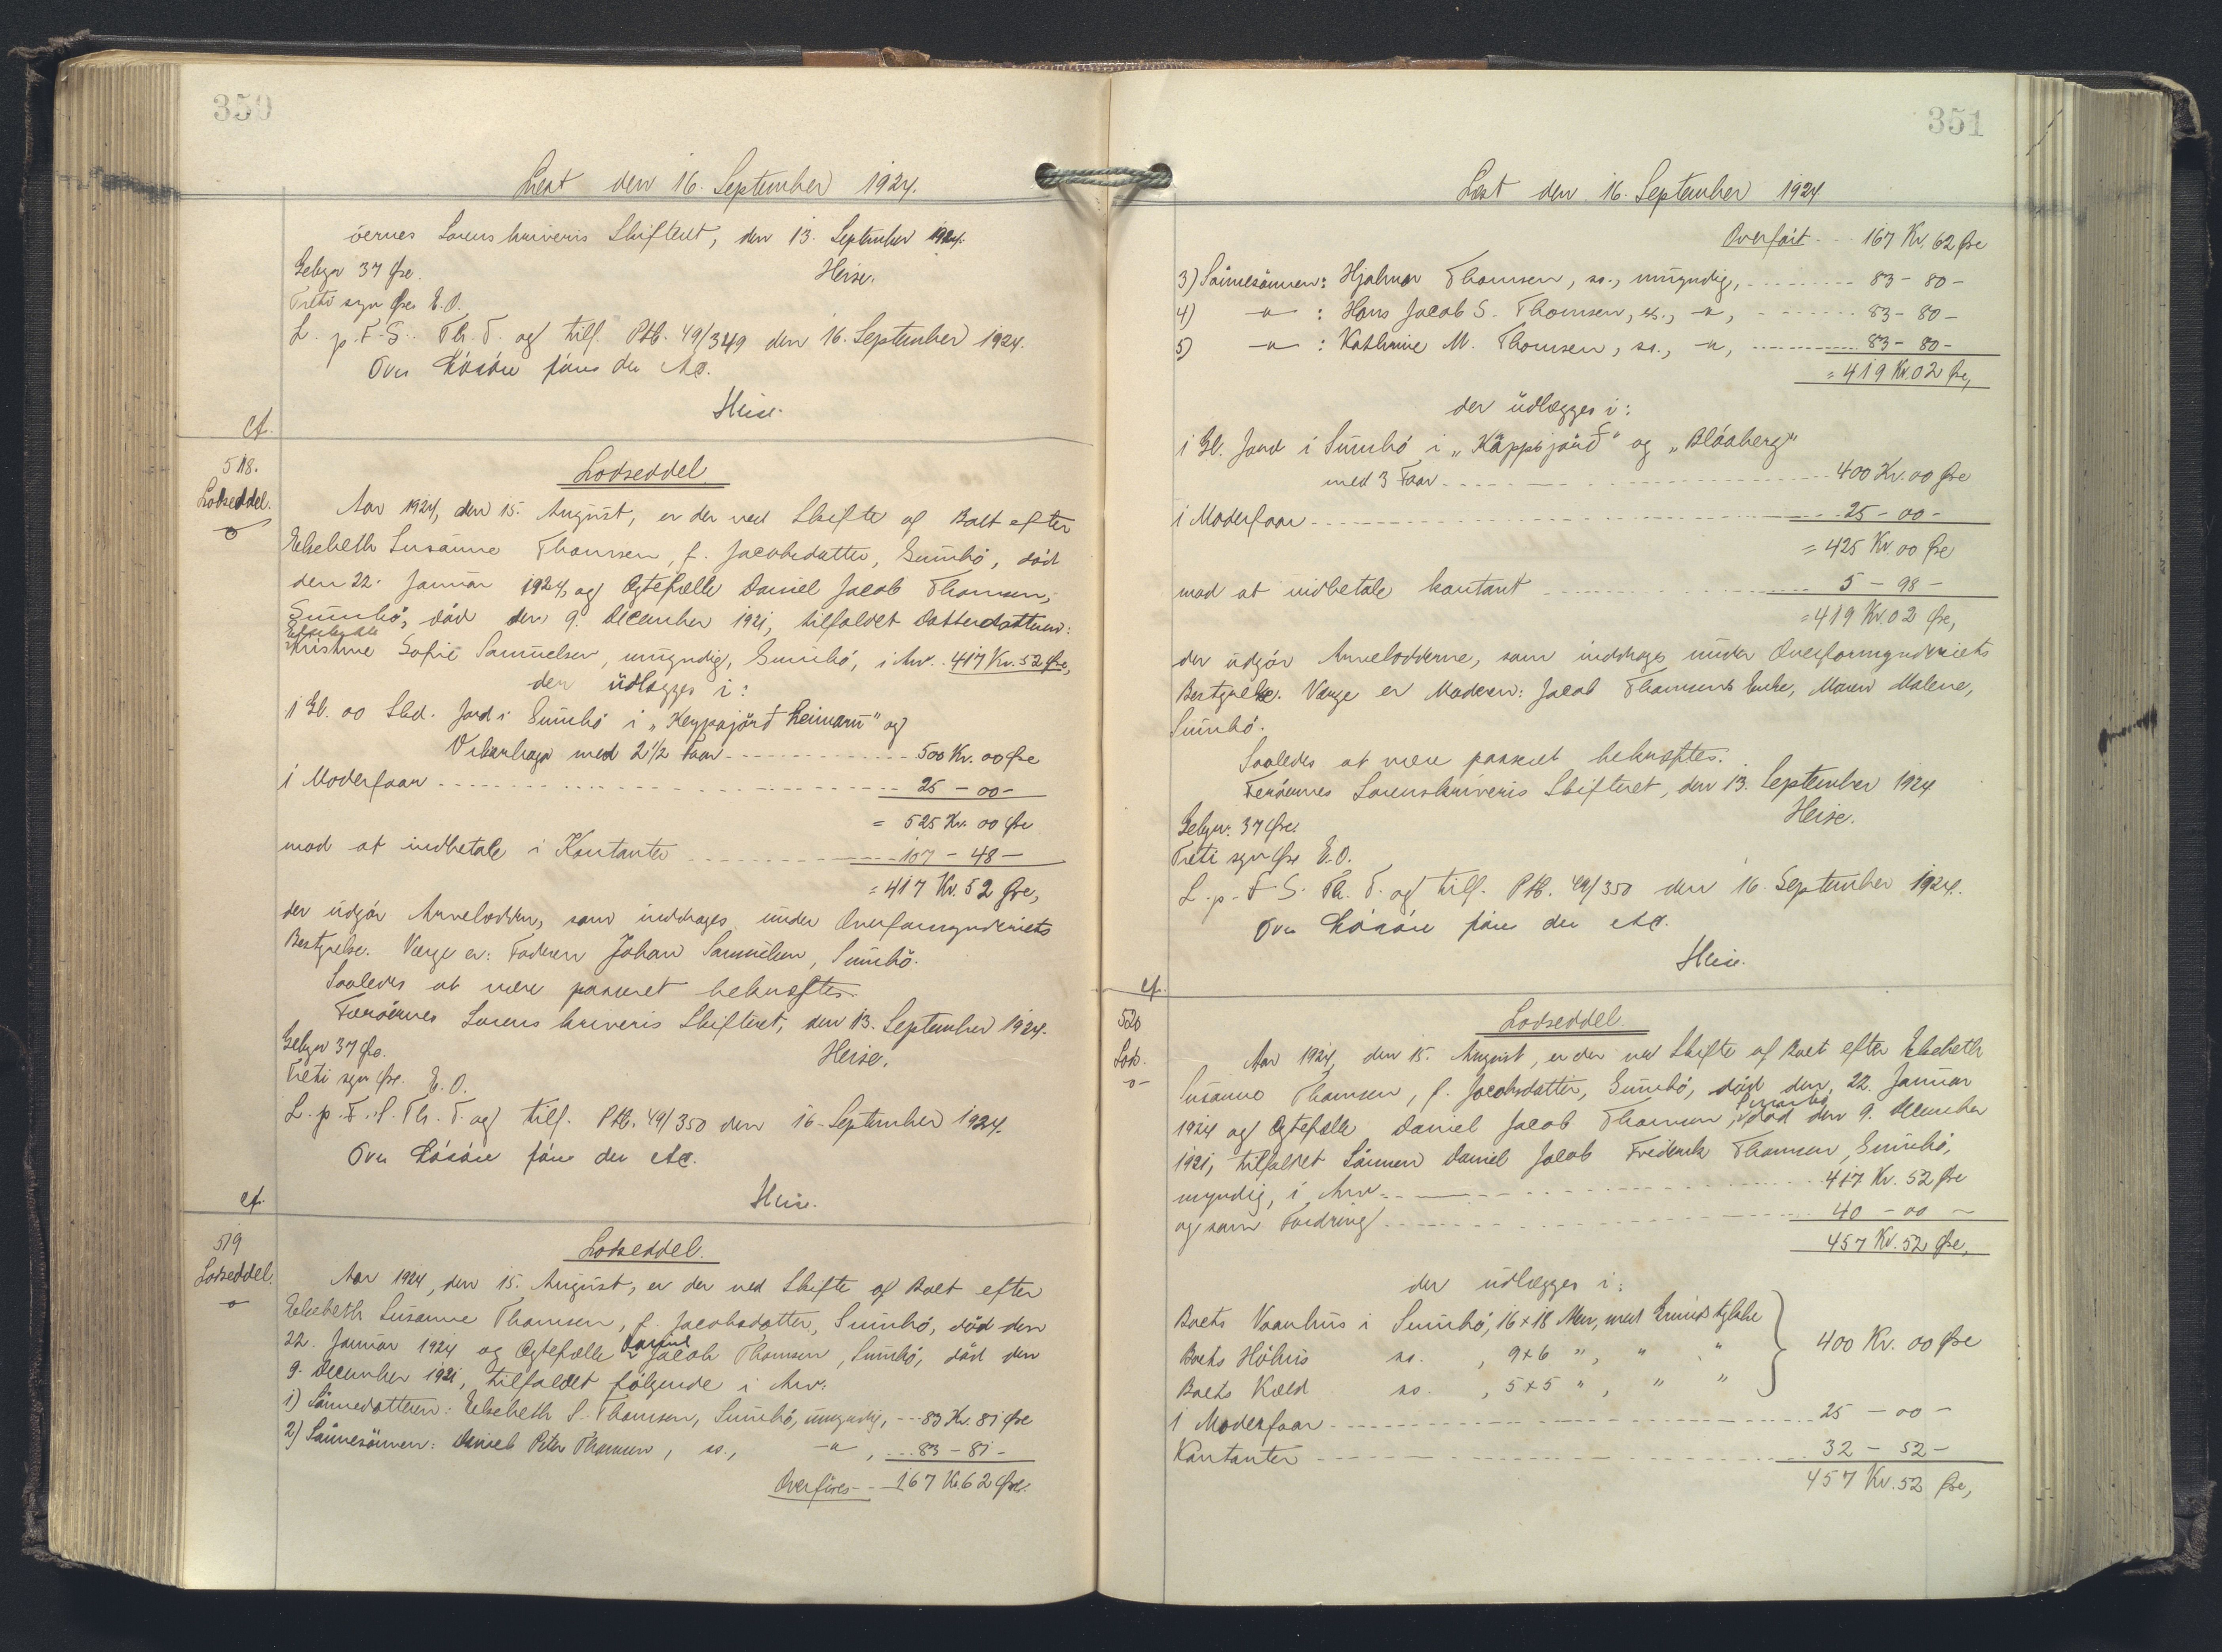 350
Læst den 16. September 1924.
öernes Sorenskriveris Skifteret, den 13. September 1924.
Gebyr 37 Øre. Heise.
Treti syv Øre E.O.
L. p. F. S. Th. T. og tilf. Ptb. 49/349 den 16. September 1924.
Heise.
cf.
518.
Lodseddel.
Lodseddel
Aar 1924, den 15. August, er der ved Skifte af Boet efter
Elsebeth Susanne Thomsen, f. Jacobsdatter, Sumbö, död
den 22. Januar 1924, og Ægtefælle Daniel Jacob Thomsen,
Sumbö, död den 9. December 1921, tilfaldet Datterdatteren:
Elsebeth
Kristine Sofie Samuelsen, umyndig, Sumbö, i Arv.. 417 Kr. 52 Øre,
der udlægges i:
1 Gl. 00 Skd. Jord i Sumbö i „Keypsjörð heimaru" og
Vikarhaga med 2 1/2 Faar 500 Kr. 00 Øre
1 Moderfaar 25 - 00 -
= 525 Kr. 00 Øre
mod at indbetale i Kontanter 107 - 48 -
= 417 Kr. 52 Øre,
der udgör Arvelodden, som inddrages under Overformynderiets
Bestyrelse. Værge er: Faderen Johan Samuelsen, Sumbö.
Saaledes at være passeret bekræftes.
Færöernes Sorenskriveris Skifteret, den 13. September 1924.
Gebyr 37 Øre. Heise.
Treti syv Øre. E.O.
L. p. F. S. Th. T. og tilf. Ptb. 49/350 den 16. September 1924.
Heise.
cf.
519
Lodseddel.
Lodseddel.
Aar 1924, den 15. August, er der ved Skifte af Boet efter
Elsebeth Susanne Thomsen, f. Jacobsdatter, Sumbö, död den
22. Januar 1924 og Ægtefælle Daniel Jacob Thomsen, Sumbö, död den
9. December 1921, tilfaldet fölgende i Arv:
1) Sönnedatteren: Elsebeth S. Thomsen, Sumbö, umyndig, 83 Kr. 81 Øre
2) Sönnesönnen: Daniel Peter Thomsen, so., -"-, 83 - 81 -
Overföres 167 Kr. 62 Øre.
351
Læst den 16. September 1924
Overfört 167 Kr. 62 Øre
3) Sönnesönnen: Hjalmar Thomsen, so., umyndig, 83 - 80 -
4) -"- : Hans Jacob S. Thomsen, so., -"-, 83 - 80 -
5) -"- : Kathrine M. Thomsen, so., -"-, 83 - 80 -
= 419 Kr. 02 Øre,
der udlægges i:
1 Gl. Jord i Sumbö i „Käppsjörð" og „Blóaberg"
med 3 Faar 400 Kr. 00 Øre
1 Moderfaar 25 - 00 -
= 425 Kr. 00 Øre
mod at indbetale kontant 5 - 98 -
= 419 Kr. 02 Øre,
der udgör Arvelodderne, som inddrages under Overformynderiets
Bestyrelse. Værge er Moderen: Jacob Thomsens Enke, Maren Malene,
Sumbö.
Saaledes at være passeret bekræftes.
Færöernes Sorenskriveris Skifteret, den 13. September 1924
Gebyr: 37 Øre. Heise.
Treti syv Øre E.O.
L. p. F. S. Th. T. og tilf. Ptb. 49/350 den 16. September 1924.
Heise.
cf.
520
Lods.
Lodseddel
Aar 1924, den 15. August, er der ved Skifte af Boet efter Elsebeth
Susanne Thomsen, f. Jacobsdatter, Sumbö, död den 22. Januar
1924 og Ægtefælle Daniel Jacob Thomsen, Sumbö, död den 9. December
1921, tilfaldet Sönnen Daniel Jacob Frederik Thomsen, Sumbö,
myndig, i Arv 417 Kr. 52 Øre
og som Fordring 40 - 00 -
457 Kr. 52 Øre,
der udlægges i:
Boets Vaanhus i Sumbö, 16 x 18 Alen, med Grundstykke
Boets Höhus so. , 9 x 6 " , " " 400 Kr. 00 Øre
Boets Kæld so. , 5 x 5 " , " "
1 Moderfaar 25 - 00 -
Kontanter 32 - 52 -
457 Kr. 52 Øre,